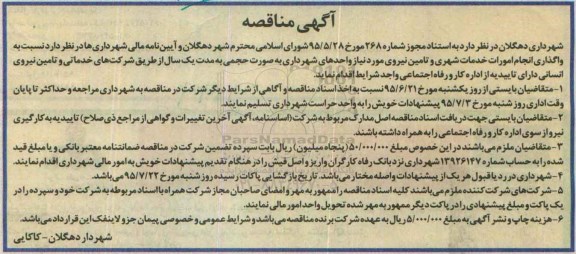 آگهی مناقصه
شهرداری دهگلان در نظر دارد به استناد مجوز شماره ۲۶۸ مورخ ۹۵/۵/۲۸ شورای اسلامی محترم شهر دهگلان و آیین نامه مالی شهرداری ها در نظر دارد نسبت به
واگذاری انجام امورات خدمات شهری و تامین نیروی مورد نیاز واحدهای شهرداری به صورت حجمی به مدت یک سال از طریق شرکت های خدماتی و تامین نیروی
انسانی دارای تاییدیه از اداره کار و رفاه اجتماعی واجد شرایط اقدام نماید.
۱- متقاضیان بایستی از روز یکشنبه مورخ ۹۵/۶/۲۱ نسبت به اخذ اسناد مناقصه و آگاهی از شرایط دیگر شرکت در مناقصه به شهرداری مراجعه و حداکثر تا پایان
وقت اداری روز شنبه مورخ ۹۵/۷/۳ پیشنهادات خویش را به واحد حراست شهرداری تسلیم نمایند.
۲- متقاضیان بایستی جهت دریافت اسناد مناقصه اصل مدارک مربوط به شرکت (اساسنامه، آگهی آخرین تغییرات و گواهی از مراجع ذی صلاح) تاییدیه به کارگیری
نیرو از سوی اداره کار و رفاه اجتماعی را به همراه داشته باشند.
۳- متقاضیان ملزم می باشند در این خصوص مبلغ ۵۰/۰۰۰/۰۰۰ (پنجاه میلیون) ریال بابت سپرده تضمین شرکت در مناقصه ضمانتنامه معتبر بانکی و یا مبلغ قید
شده را به حساب شماره ۱۳۹۲۶۱۴۷ شهرداری نزد بانک رفاه کارگران واریز و اصل فیش را در هنگام تقدیم پیشنهادات خویش به امور مالی شهرداری اقدام نمایند.
۴- شهرداری در رد یا قبول هر یک از پیشنهادات واصله مختار می باشد. تاریخ بازگشایی پاکات رسیده روز شنبه مورخ ۹۵/۷/۲۲ می باشد.
۵- شرکت های شرکت کننده ملزم می باشند کلیه اسناد مناقصه را ممهور به مهر و امضای صاحبان مجاز شرکت همراه با اسناد مربوطه به شرکت خود و سپرده را در
یک پاکت و مبلغ پیشنهادی را در پاکت دیگر ممهور به مهر شده تحویل واحد امور مالی نمایند.
۶- هزینه چاپ و نشر آگهی به مبلغ ۵/۰۰۰/۰۰۰ ریال به عهده شرکت برنده مناقصه می باشد و شرایط عمومی و خصوصی پیمان جزو لاینفک این قرارداد می باشد.
شهردار دهگلان - کاکایی
ParsNamadData